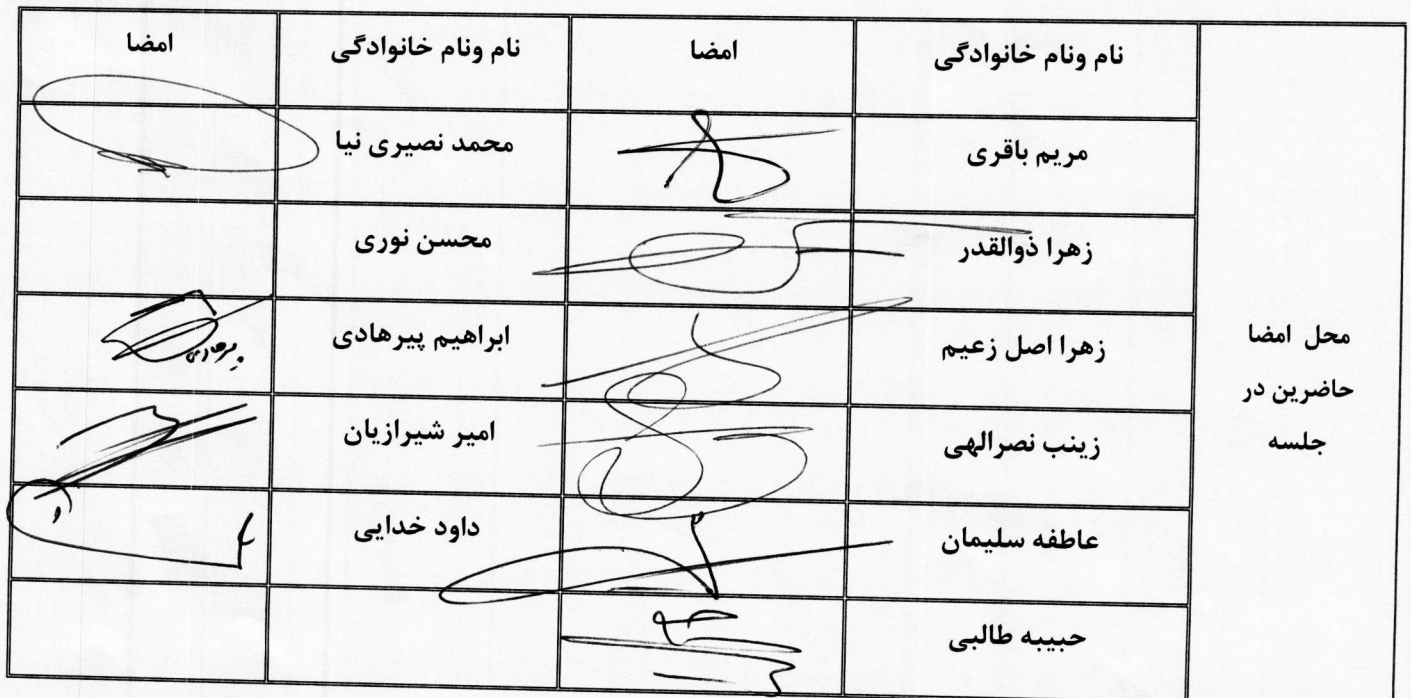 محل امضا
حاضرین در
جلسه
نام ونام خانوادگی امضا نام ونام خانوادگی امضا
مریم باقری محمد نصیری نیا
زهرا ذوالقدر محسن نوری
زهرا اصل زعیم ابراهیم پیرهادی پیرهادی
زینب نصرالهی امیر شیرازیان
عاطفه سلیمان داود خدایی
حبیبه طالبی